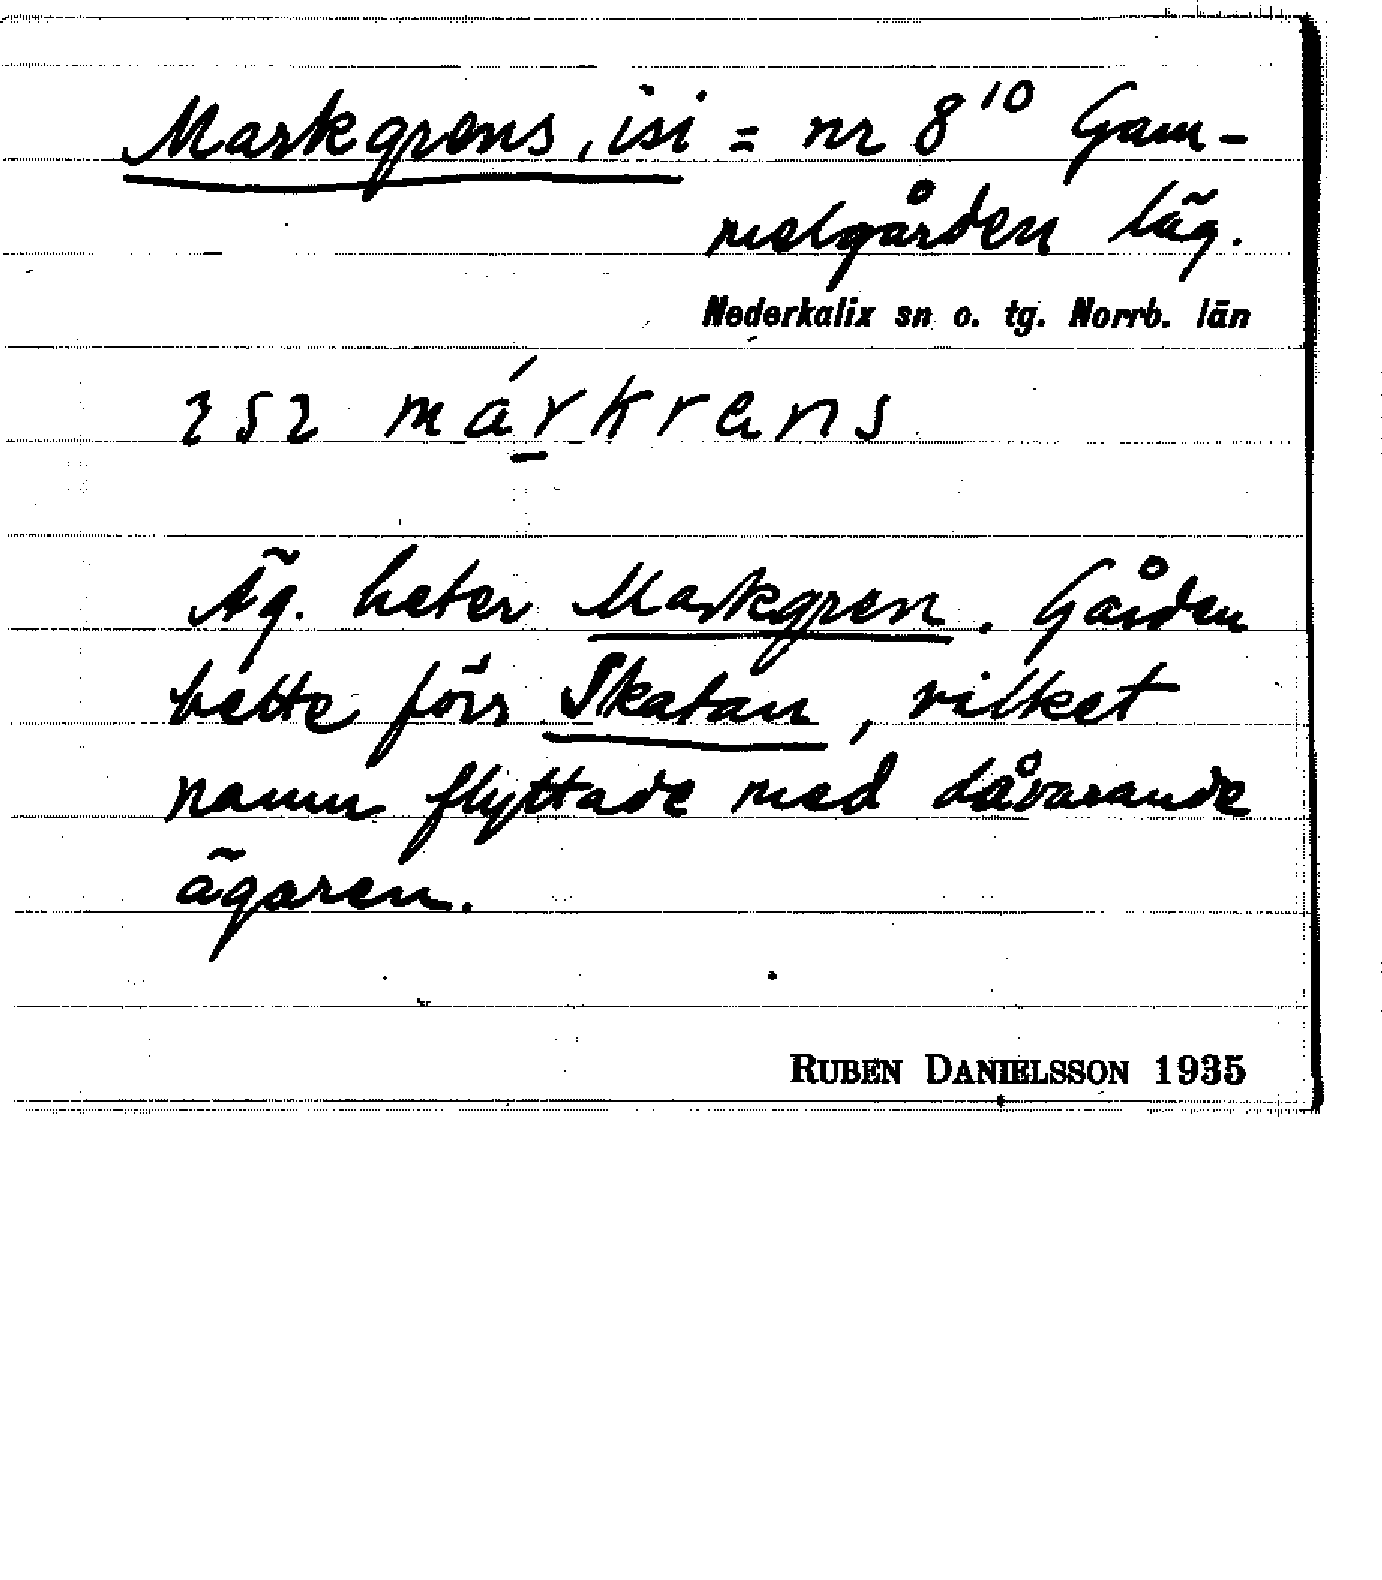 Markgrens, isi = nr 8¹⁰ Gam-
melgården läg.
Nederkalix sn o. tg. Norrb. län
252 márkrens
Äg. heter Markgren. Gården
hette förr Skatan, vilket
namn flyttade med dåvarande
ägaren.
RUBEN DANIELSSON 1935